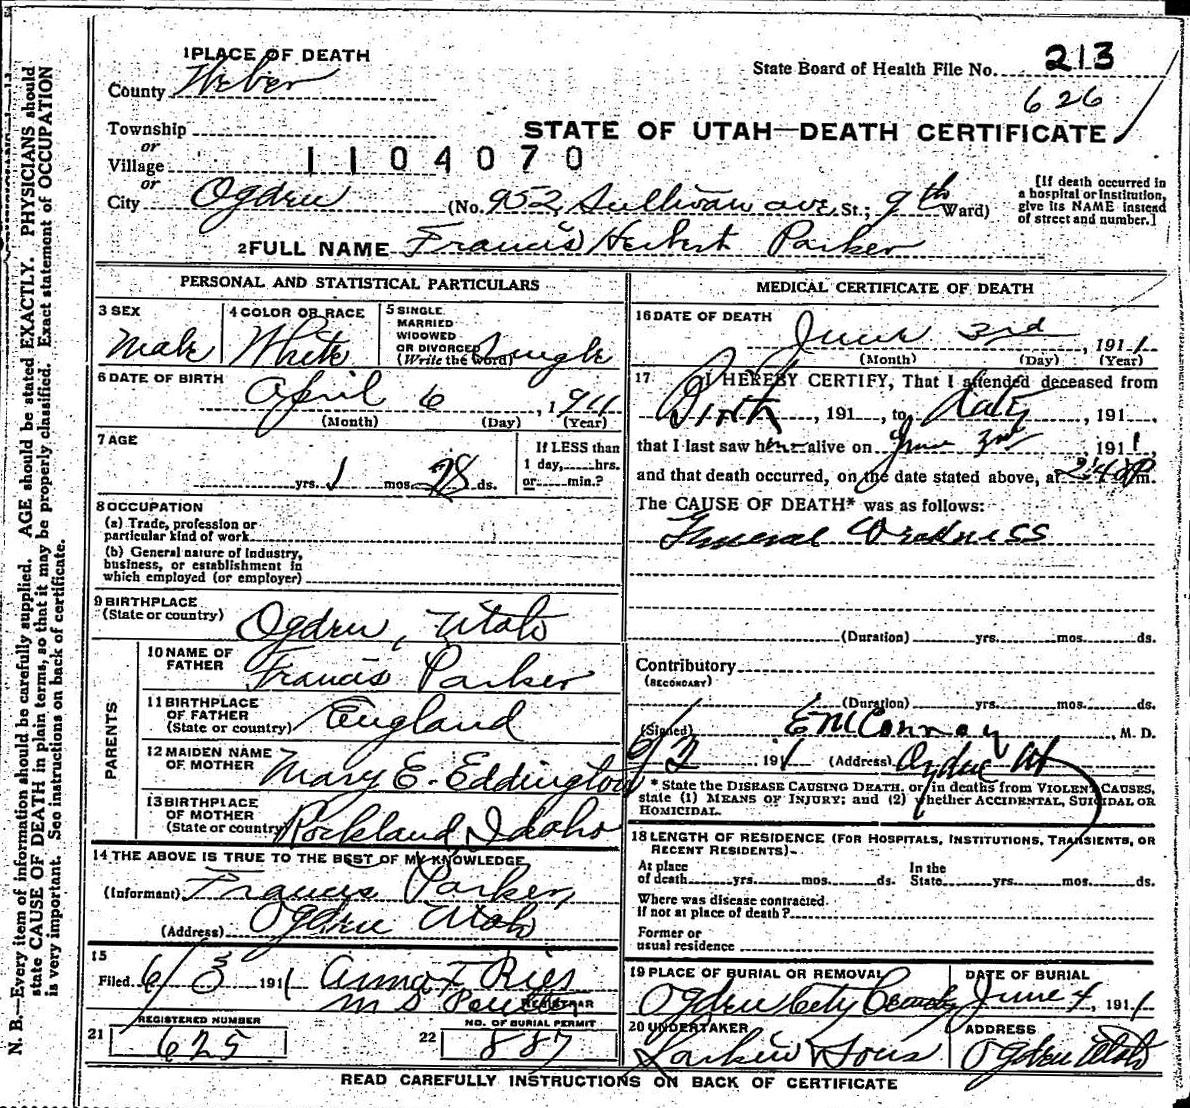 N. B.—Every item of information should be carefully supplied. AGE should be stated EXACTLY. PHYSICIANS should
state CAUSE OF DEATH in plain terms, so that it may be properly classified. Exact statement of OCCUPATION
is very important. See instructions on back of certificate.
1 PLACE OF DEATH
State Board of Health File No. 213
County Weber
626
Township
STATE OF UTAH—DEATH CERTIFICATE
or
Village 1104070
or
City Ogden (No. 952 Sullivan ave. St.; 9th Ward)
[If death occurred in
a hospital or institution,
give its NAME instead
of street and number.]
2 FULL NAME Francis Herbert Parker
PERSONAL AND STATISTICAL PARTICULARS
3 SEX Male
4 COLOR OR RACE White
5 SINGLE
MARRIED
WIDOWED
OR DIVORCED
(Write the word) Single
6 DATE OF BIRTH
April 6, 1911
(Month) (Day) (Year)
7 AGE
yrs. 1 mos. 28 ds.
If LESS than
1 day, hrs.
or min.?
8 OCCUPATION
(a) Trade, profession or
particular kind of work
(b) General nature of industry,
business, or establishment in
which employed (or employer)
9 BIRTHPLACE
(State or country) Ogden, Utah
PARENTS
10 NAME OF
FATHER Francis Parker
11 BIRTHPLACE
OF FATHER
(State or country) England
12 MAIDEN NAME
OF MOTHER Mary E. Eddington
13 BIRTHPLACE
OF MOTHER
(State or country) Rockland, Idaho
14 THE ABOVE IS TRUE TO THE BEST OF MY KNOWLEDGE
(Informant) Francis Parker,
(Address) Ogden Utah
15
Filed 6/3 1911 Anna T Ries
REGISTRAR
REGISTERED NUMBER
21 625
NO. OF BURIAL PERMIT
22 887
MEDICAL CERTIFICATE OF DEATH
16 DATE OF DEATH
June 3rd, 1911
(Month) (Day) (Year)
17 I HEREBY CERTIFY, That I attended deceased from
Birth, 191 , to date, 191 ,
that I last saw h alive on June 3rd 1911,
and that death occurred, on the date stated above, at m.
The CAUSE OF DEATH* was as follows:
General Weakness
(Duration) yrs. mos. ds.
Contributory
(SECONDARY)
(Duration) yrs. mos. ds.
(Signed) , M. D.
6/3 1911 (Address) Ogden Ut
* State the DISEASE CAUSING DEATH, or, in deaths from VIOLENT CAUSES,
state (1) MEANS OF INJURY; and (2) whether ACCIDENTAL, SUICIDAL OR
HOMICIDAL.
18 LENGTH OF RESIDENCE (FOR HOSPITALS, INSTITUTIONS, TRANSIENTS, OR
RECENT RESIDENTS)
At place of death yrs. mos. ds. In the State yrs. mos. ds.
Where was disease contracted.
If not at place of death?
Former or
usual residence
19 PLACE OF BURIAL OR REMOVAL DATE OF BURIAL
Ogden City June 4, 1911
20 UNDERTAKER ADDRESS
Larkin & Sons Ogden Utah
READ CAREFULLY INSTRUCTIONS ON BACK OF CERTIFICATE